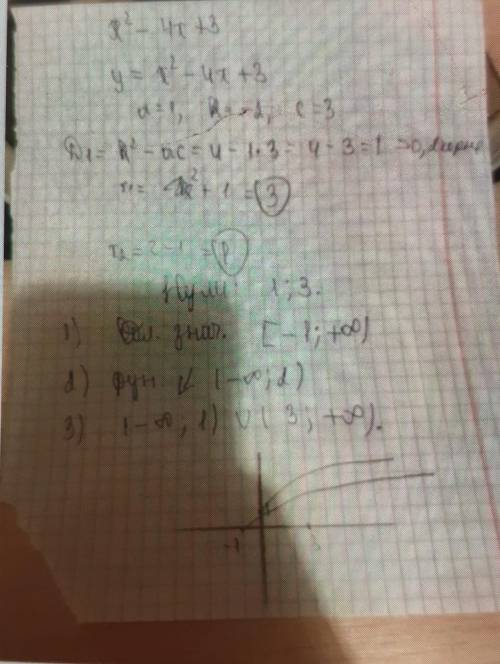 x² - 4x + 3
y = x² - 4x + 3
a = 1, k = -2, c = 3
D₁ = k² - ac = 4 - 1·3 = 4 - 3 = 1 >0, 2 корня
x₁ = 2 + 1 = 3
x₂ = 2 - 1 = 1
Нули: 1; 3.
1) Обл. знач. [-1; +∞)
2) фун. ↙ (-∞; 2)
3) (-∞; 1) ∪ (3; +∞).
-1 3